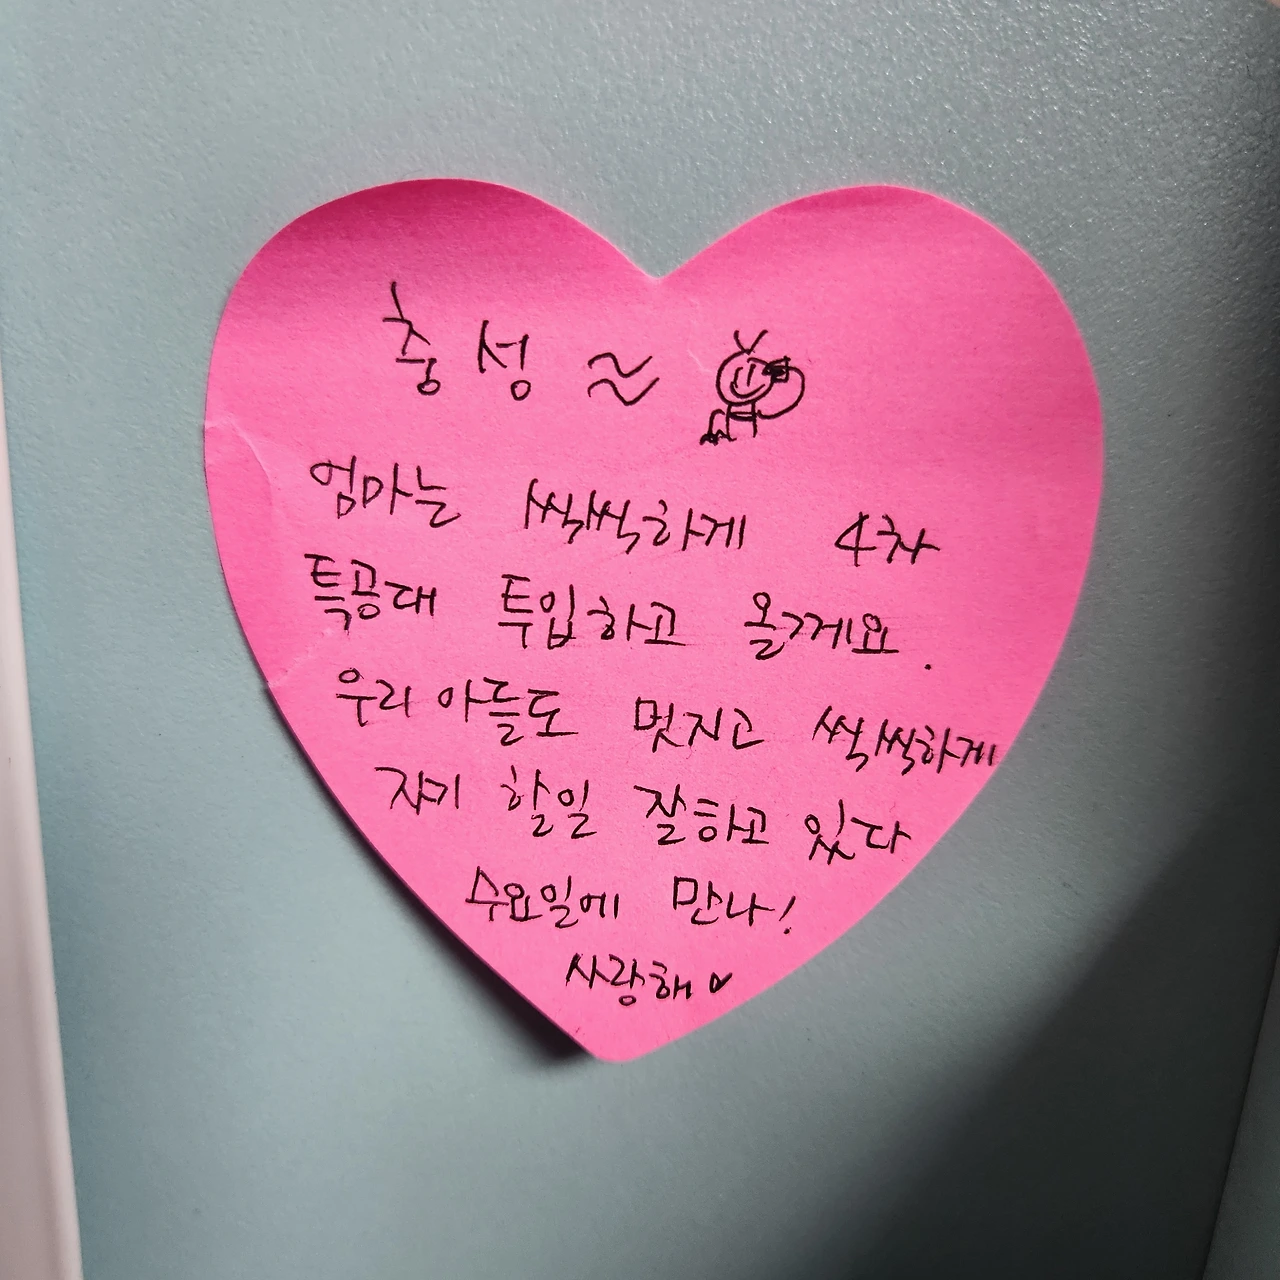 충성 ≈
엄마는 씩씩하게 4차
특공대 투입하고 올게요.
우리 아들도 멋지고 씩씩하게
자기 할일 잘하고 있다
수요일에 만나!
사랑해♡